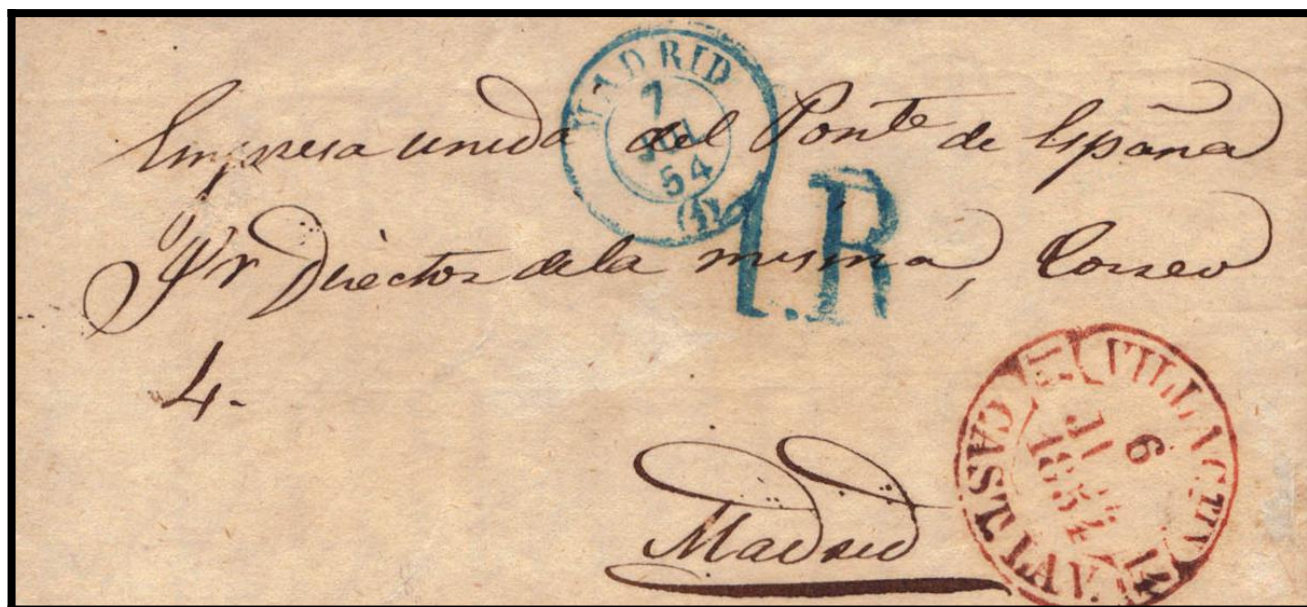 MADRID
7
JUL
54
(1)
Empresa unida del Ponte de España
Sr Director de la misma, Correo
1.R
4.
Madrid
6
JUL
1854
CAST. LA V.